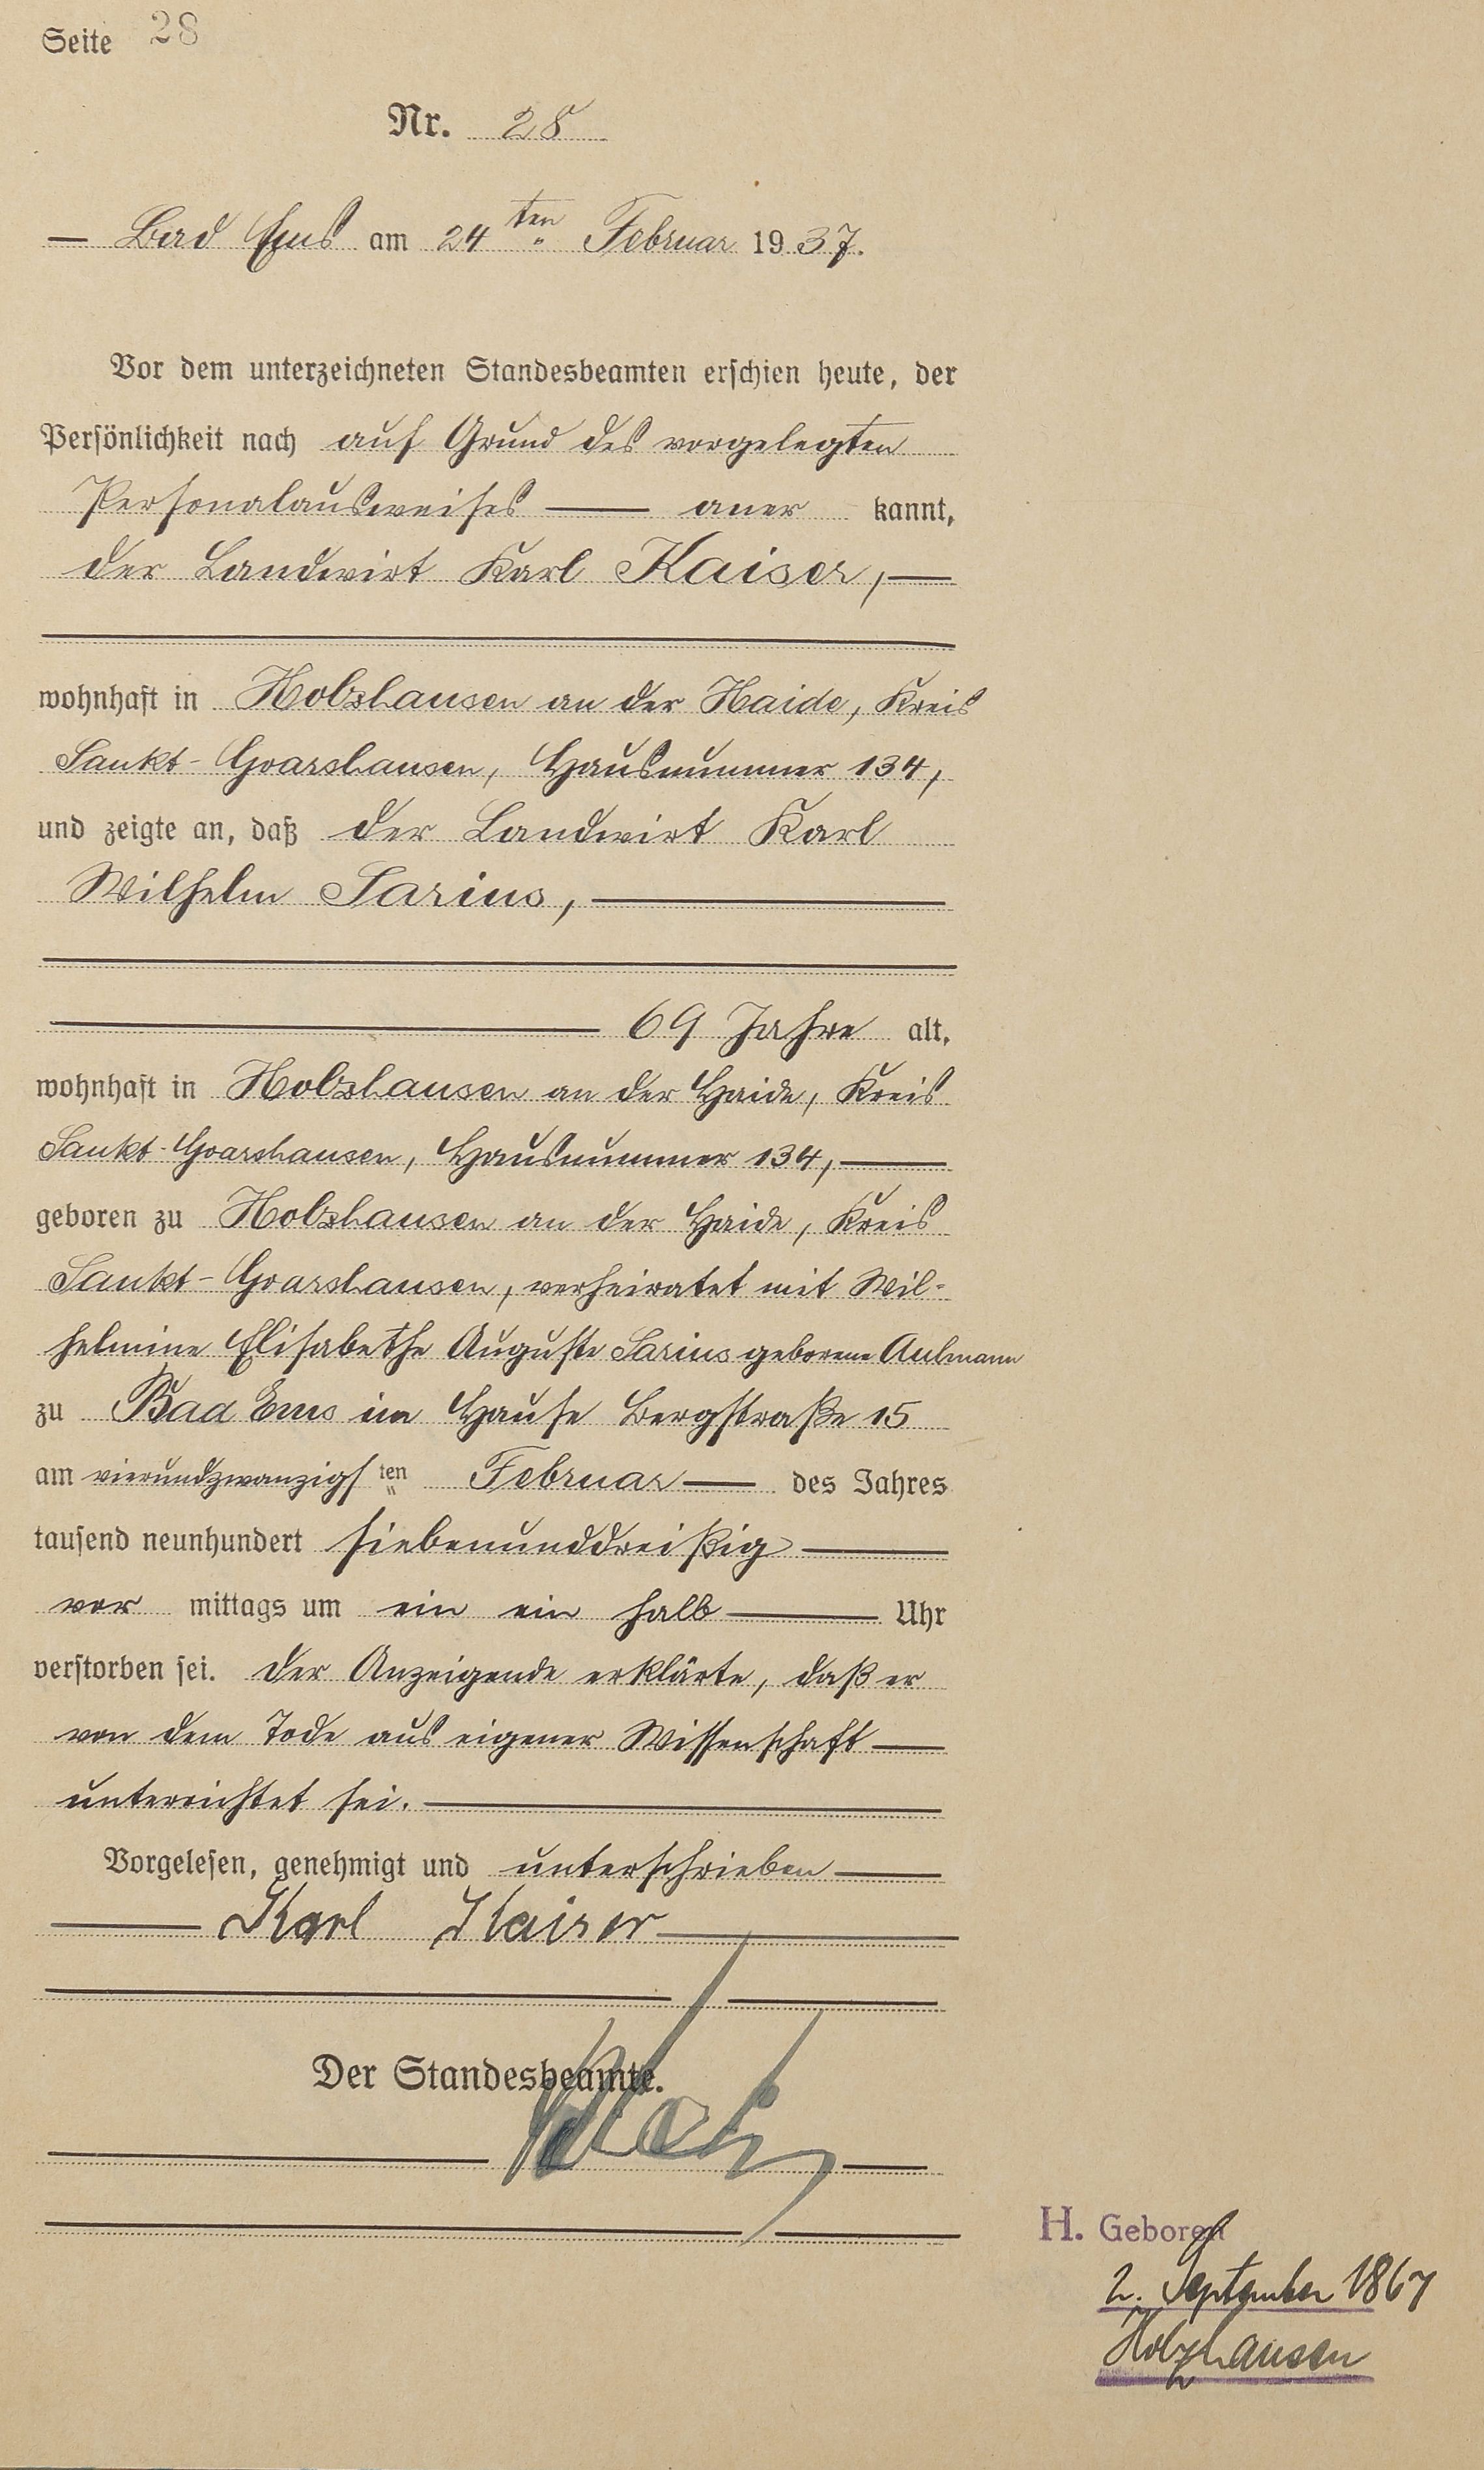 Seite 28
Nr. 28
— Bad Ems am 24ten Februar 1937.
Vor dem unterzeichneten Standesbeamten erschien heute, der
Persönlichkeit nach auf Grund des vorgelegten
Personalausweises — aner kannt,
der Landwirt Karl Kaiser, —
wohnhaft in Holzhausen an der Haide, Kreis
Sankt-Goarshausen, Hausnummer 134,
und zeigte an, daß der Landwirt Karl
Wilhelm Sarius, —
— 69 Jahre alt,
wohnhaft in Holzhausen an der Haide, Kreis
Sankt-Goarshausen, Hausnummer 134, —
geboren zu Holzhausen an der Haide, Kreis
Sankt-Goarshausen, verheiratet mit Wil-
helmine Elisabethe Auguste Sarius geborene Aulmann
zu Bad Ems im Hause Bergstraße 15
am vierundzwanzigsten Februar — des Jahres
tausend neunhundert siebenunddreißig —
vor mittags um ein ein halb — Uhr
verstorben sei. Der Anzeigende erklärte, daß er
von dem Tode aus eigener Wissenschaft —
unterrichtet sei. —
Vorgelesen, genehmigt und unterschrieben —
— Karl Kaiser —
Der Standesbeamte.
H. Geboren
2. September 1867
Holzhausen